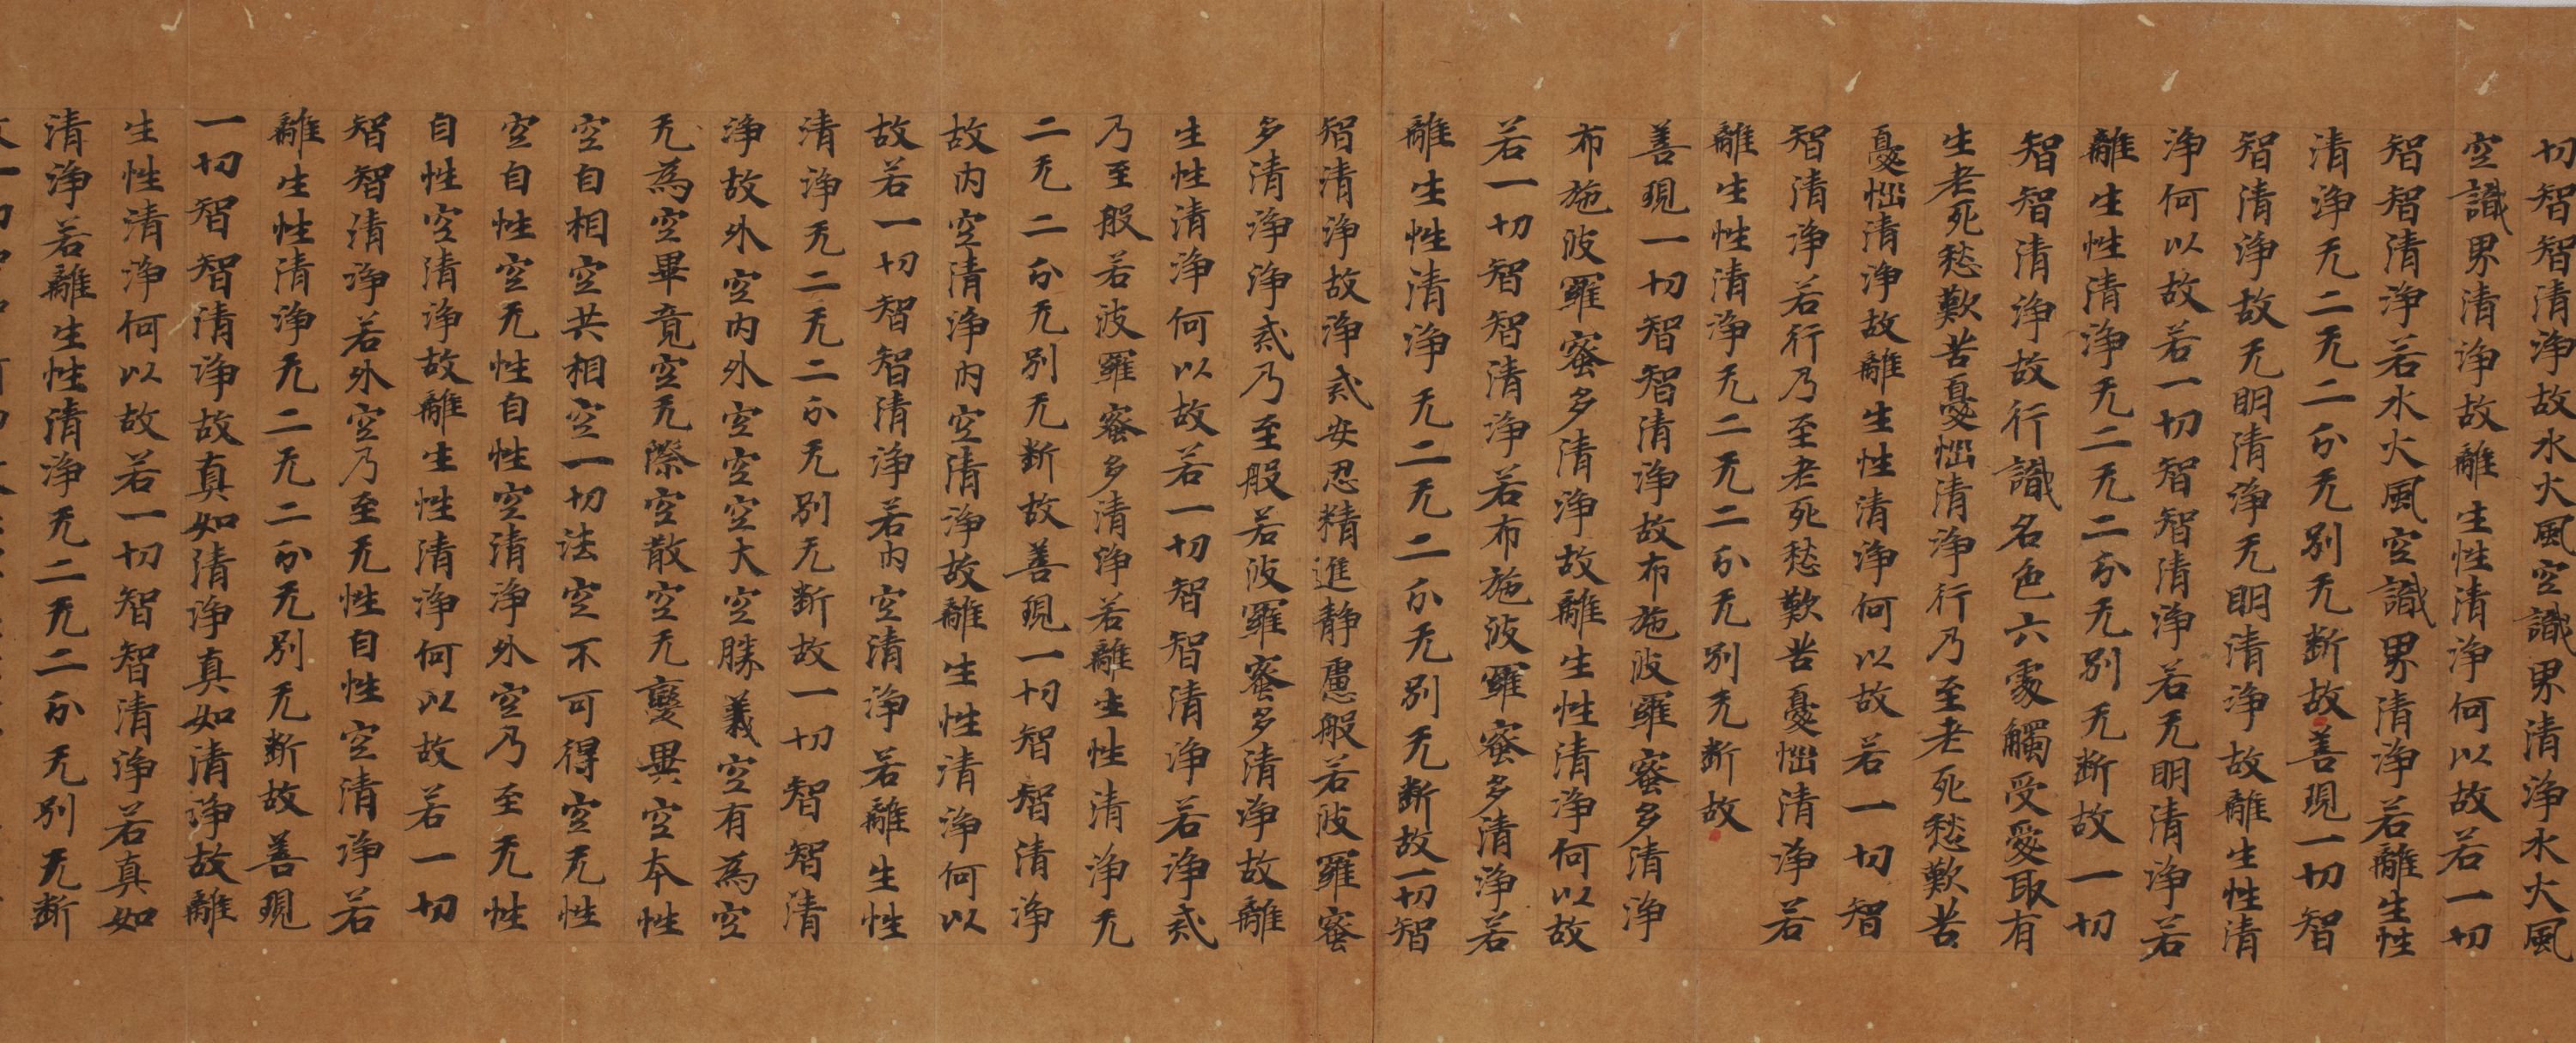 切智智清淨故水火風空識界清淨水火風
空識界清淨故離生性清淨何以故若一切
智智清淨若水火風空識界清淨若離生性
清淨无二无二分无別无断故善現一切智
智清淨故无明清淨无明清淨故離生性清
淨何以故若一切智智清淨若无明清淨若
離生性清淨无二无二分无別无断故一切
智智清淨故行識名色六處觸受愛取有
生老死愁歎苦憂惱清淨行乃至老死愁歎苦
憂惱清淨故離生性清淨何以故若一切智
智清淨若行乃至老死愁歎苦憂惱清淨若
離生性清淨无二无二分无別无断故
善現一切智智清淨故布施波羅蜜多清淨
布施波羅蜜多清淨故離生性清淨何以故
若一切智智清淨若布施波羅蜜多清淨若
離生性清淨无二无二分无別无断故一切智
智清淨故淨戒安忍精進静慮般若波羅蜜
多清淨淨戒乃至般若波羅蜜多清淨故離
生性清淨何以故若一切智智清淨若淨戒
乃至般若波羅蜜多清淨若離生性清淨无
二无二分无別无断故善現一切智智清淨
故内空清淨内空清淨故離生性清淨何以
故若一切智智清淨若内空清淨若離生性
清淨无二无二分无別无断故一切智智清
淨故外空内外空空空大空勝義空有為空
无為空畢竟空无際空散空无變異空本性
空自相空共相空一切法空不可得空无性
空自性空无性自性空清淨外空乃至无性
自性空清淨故離生性清淨何以故若一切
智智清淨若外空乃至无性自性空清淨若
離生性清淨无二无二分无別无断故善現
一切智智清淨故真如清淨真如清淨故離
生性清淨何以故若一切智智清淨若真如
清淨若離生性清淨无二无二分无別无断